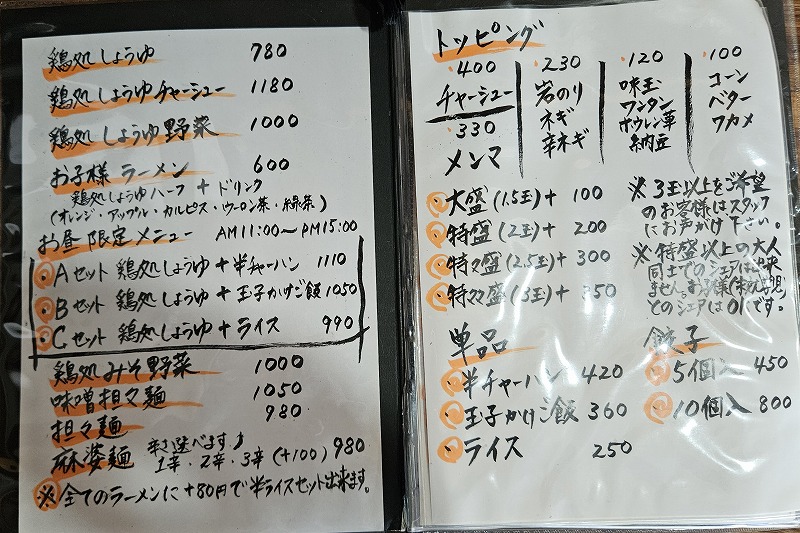 鶏処しょうゆ 780
鶏処しょうゆチャーシュー 1180
鶏処しょうゆ野菜 1000
お子様ラーメン 600
鶏処しょうゆハーフ + ドリンク
(オレンジ・アップル・カルピス・ウーロン茶・緑茶)
お昼限定メニュー AM11:00〜PM15:00
・Aセット 鶏処しょうゆ+半チャーハン 1110
・Bセット 鶏処しょうゆ+玉子かけご飯 1050
・Cセット 鶏処しょうゆ+ライス 990
鶏処みそ野菜 1000
味噌担々麺 1050
担々麺 980
麻婆麺 辛さ選べます♪ 1辛・2辛・3辛(+100) 980
※全てのラーメンに+80円で半ライスセット出来ます。
トッピング
・400
チャーシュー
・330
メンマ
・230
岩のり
ネギ
辛ネギ
・120
味玉
ワンタン
ホウレン草
納豆
・100
コーン
バター
ワカメ
・大盛(1.5玉)+ 100
・特盛(2玉)+ 200
・特々盛(2.5玉)+ 300
・特々々盛(3玉)+ 350
※3玉以上をご希望
のお客様はスタッフ
にお声がけ下さい。
※特盛以上の大人
同士でのシェアは出来
ません。お子様(未就学児)
とのシェアはOKです。
単品
・半チャーハン 420
・玉子かけご飯 360
・ライス 250
餃子
・5個入 450
・10個入 800